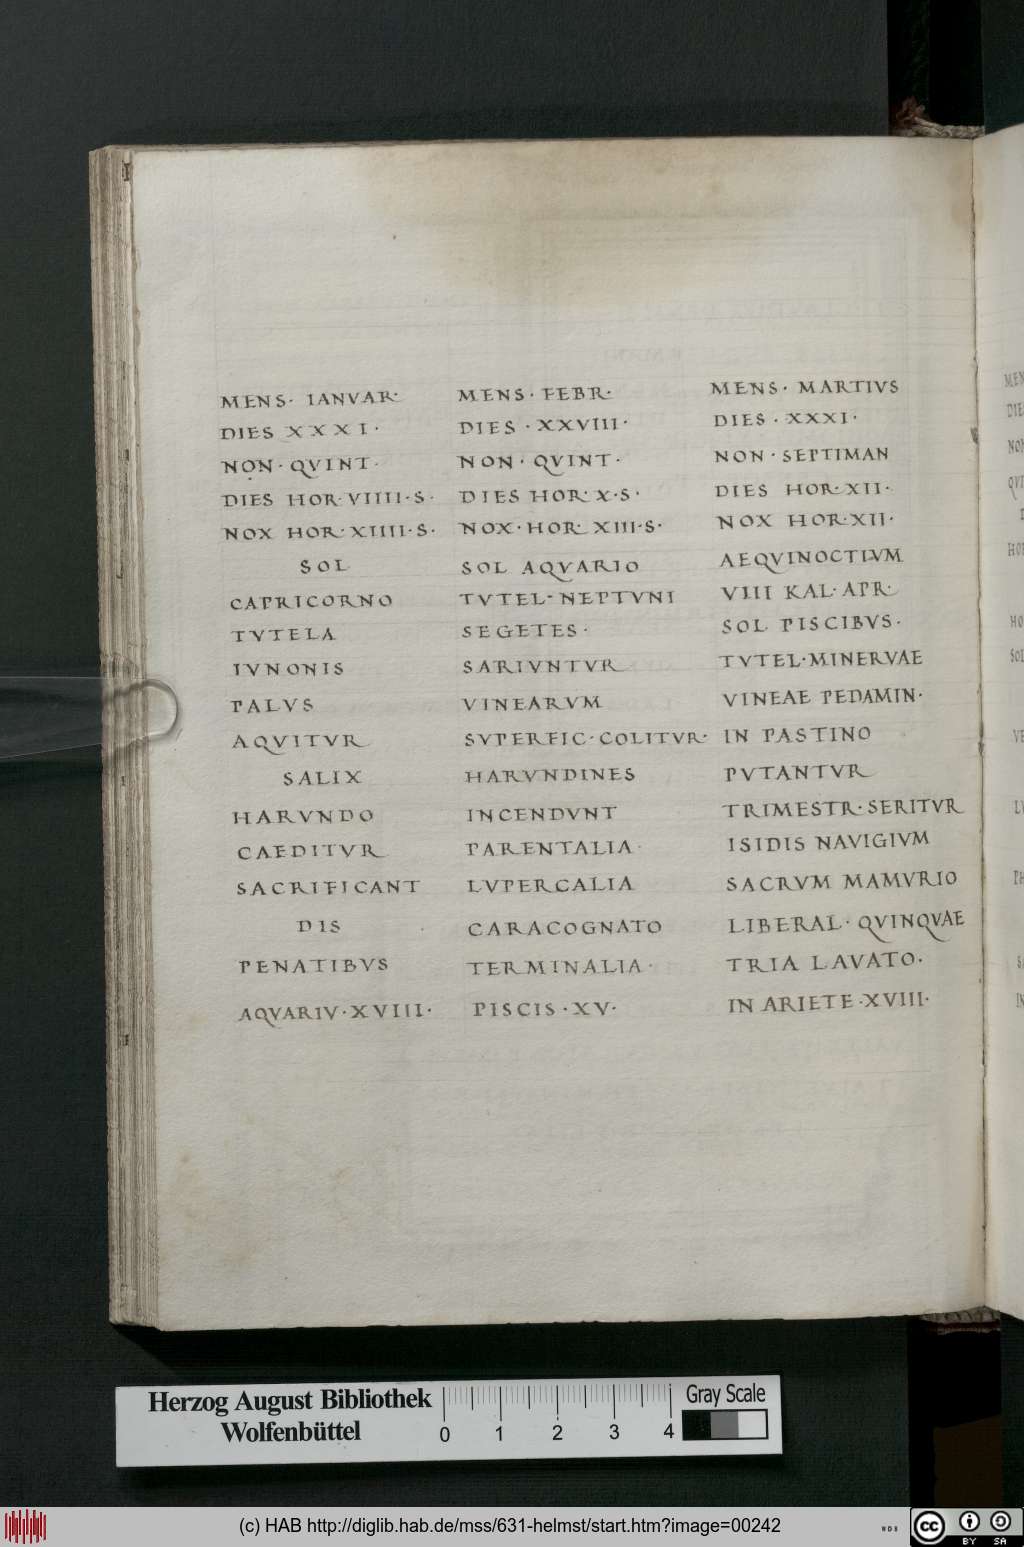 MENS· IANVAR·
DIES XXXI·
NON·QVINT·
DIES HOR·VIIII·S·
NOX HOR·XIIII·S·
SOL
CAPRICORNO
TVTELA
IVNONIS
PALVS
AQVITVR
SALIX
HARVNDO
CAEDITVR
SACRIFICANT
DIS
PENATIBVS
AQVARIV·XVIII·
MENS·FEBR·
DIES·XXVIII·
NON·QVINT·
DIES HOR·X·S·
NOX·HOR XIII·S·
SOL AQVARIO
TVTEL·NEPTVNI
SEGETES·
SARIVNTVR
VINEARVM
SVPERFIC·COLITVR·
HARVNDINES
INCENDVNT
PARENTALIA·
LVPERCALIA
CARACOGNATO
TERMINALIA·
PISCIS·XV·
MENS·MARTIVS
DIES·XXXI·
NON·SEPTIMAN
DIES HOR·XII·
NOX HOR·XII·
AEQVINOCTIVM
VIII KAL·APR·
SOL PISCIBVS·
TVTEL·MINERVAE
VINEAE PEDAMIN·
IN PASTINO
PVTANTVR
TRIMESTR·SERITVR
ISIDIS NAVIGIVM
SACRVM MAMVRIO
LIBERAL·QVINQVAE
TRIA LAVATO·
IN ARIETE·XVIII·
Herzog August Bibliothek
Wolfenbüttel
0 1 2 3 4
Gray Scale
(c) HAB http://diglib.hab.de/mss/631-helmst/start.htm?image=00242
WDB
cc BY SA